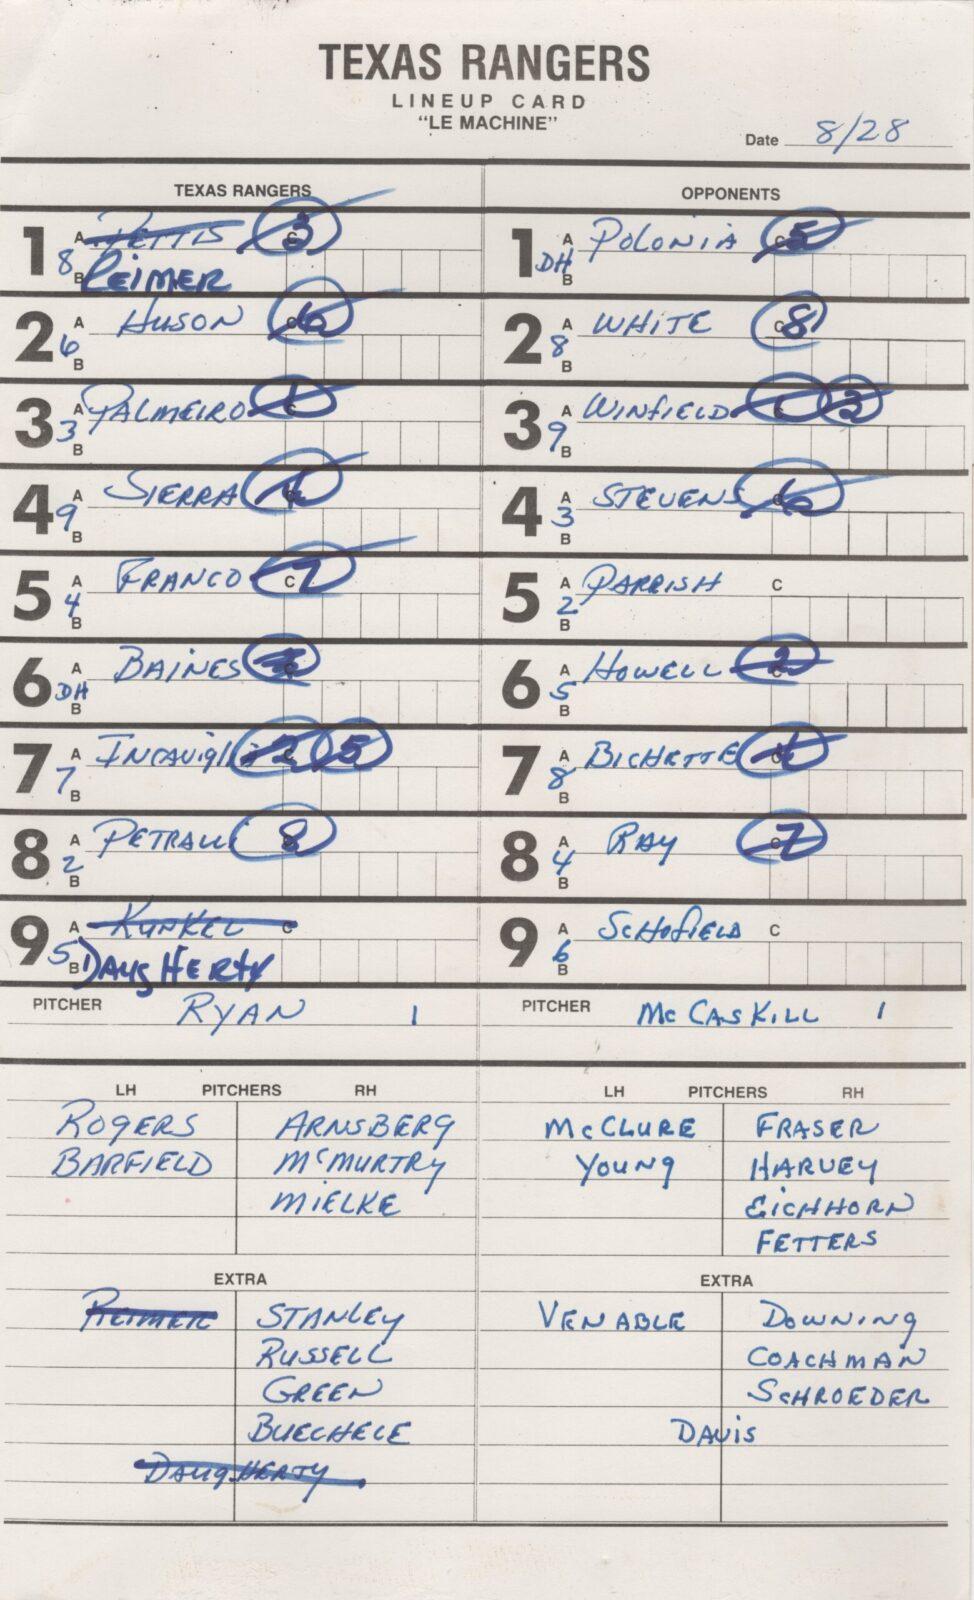 TEXAS RANGERS
LINEUP CARD
"LE MACHINE"
Date 8/28
TEXAS RANGERS
OPPONENTS
1 A PETTIS C 3
8 B REIMER
2 A HUSON C 6
6 B
3 A PALMEIRO C 1
3 B
4 A SIERRA C 4
9 B
5 A FRANCO C 7
4 B
6 A BAINES C
DH B
7 A INCAVIGLIA C 2 5
7 B
8 A PETRALLI C 8
2 B
9 A KUNKEL C
5 B DAUGHERTY
PITCHER RYAN 1
1 A POLONIA C 5
DH B
2 A WHITE C 8
8 B
3 A WINFIELD C 1 3
9 B
4 A STEVENS C 6
3 B
5 A PARRISH C
2 B
6 A HOWELL C 2
5 B
7 A BICHETTE C 4
8 B
8 A RAY C 7
4 B
9 A SCHOFIELD C
6 B
PITCHER McCASKILL 1
LH PITCHERS RH
ROGERS ARNSBERG
BARFIELD McMURTRY
MIELKE
LH PITCHERS RH
McCLURE FRASER
YOUNG HARVEY
EICHHORN
FETTERS
EXTRA
REIMER STANLEY
RUSSELL
GREEN
BUECHELE
DAUGHERTY
EXTRA
VENABLE DOWNING
COACHMAN
SCHROEDER
DAVIS